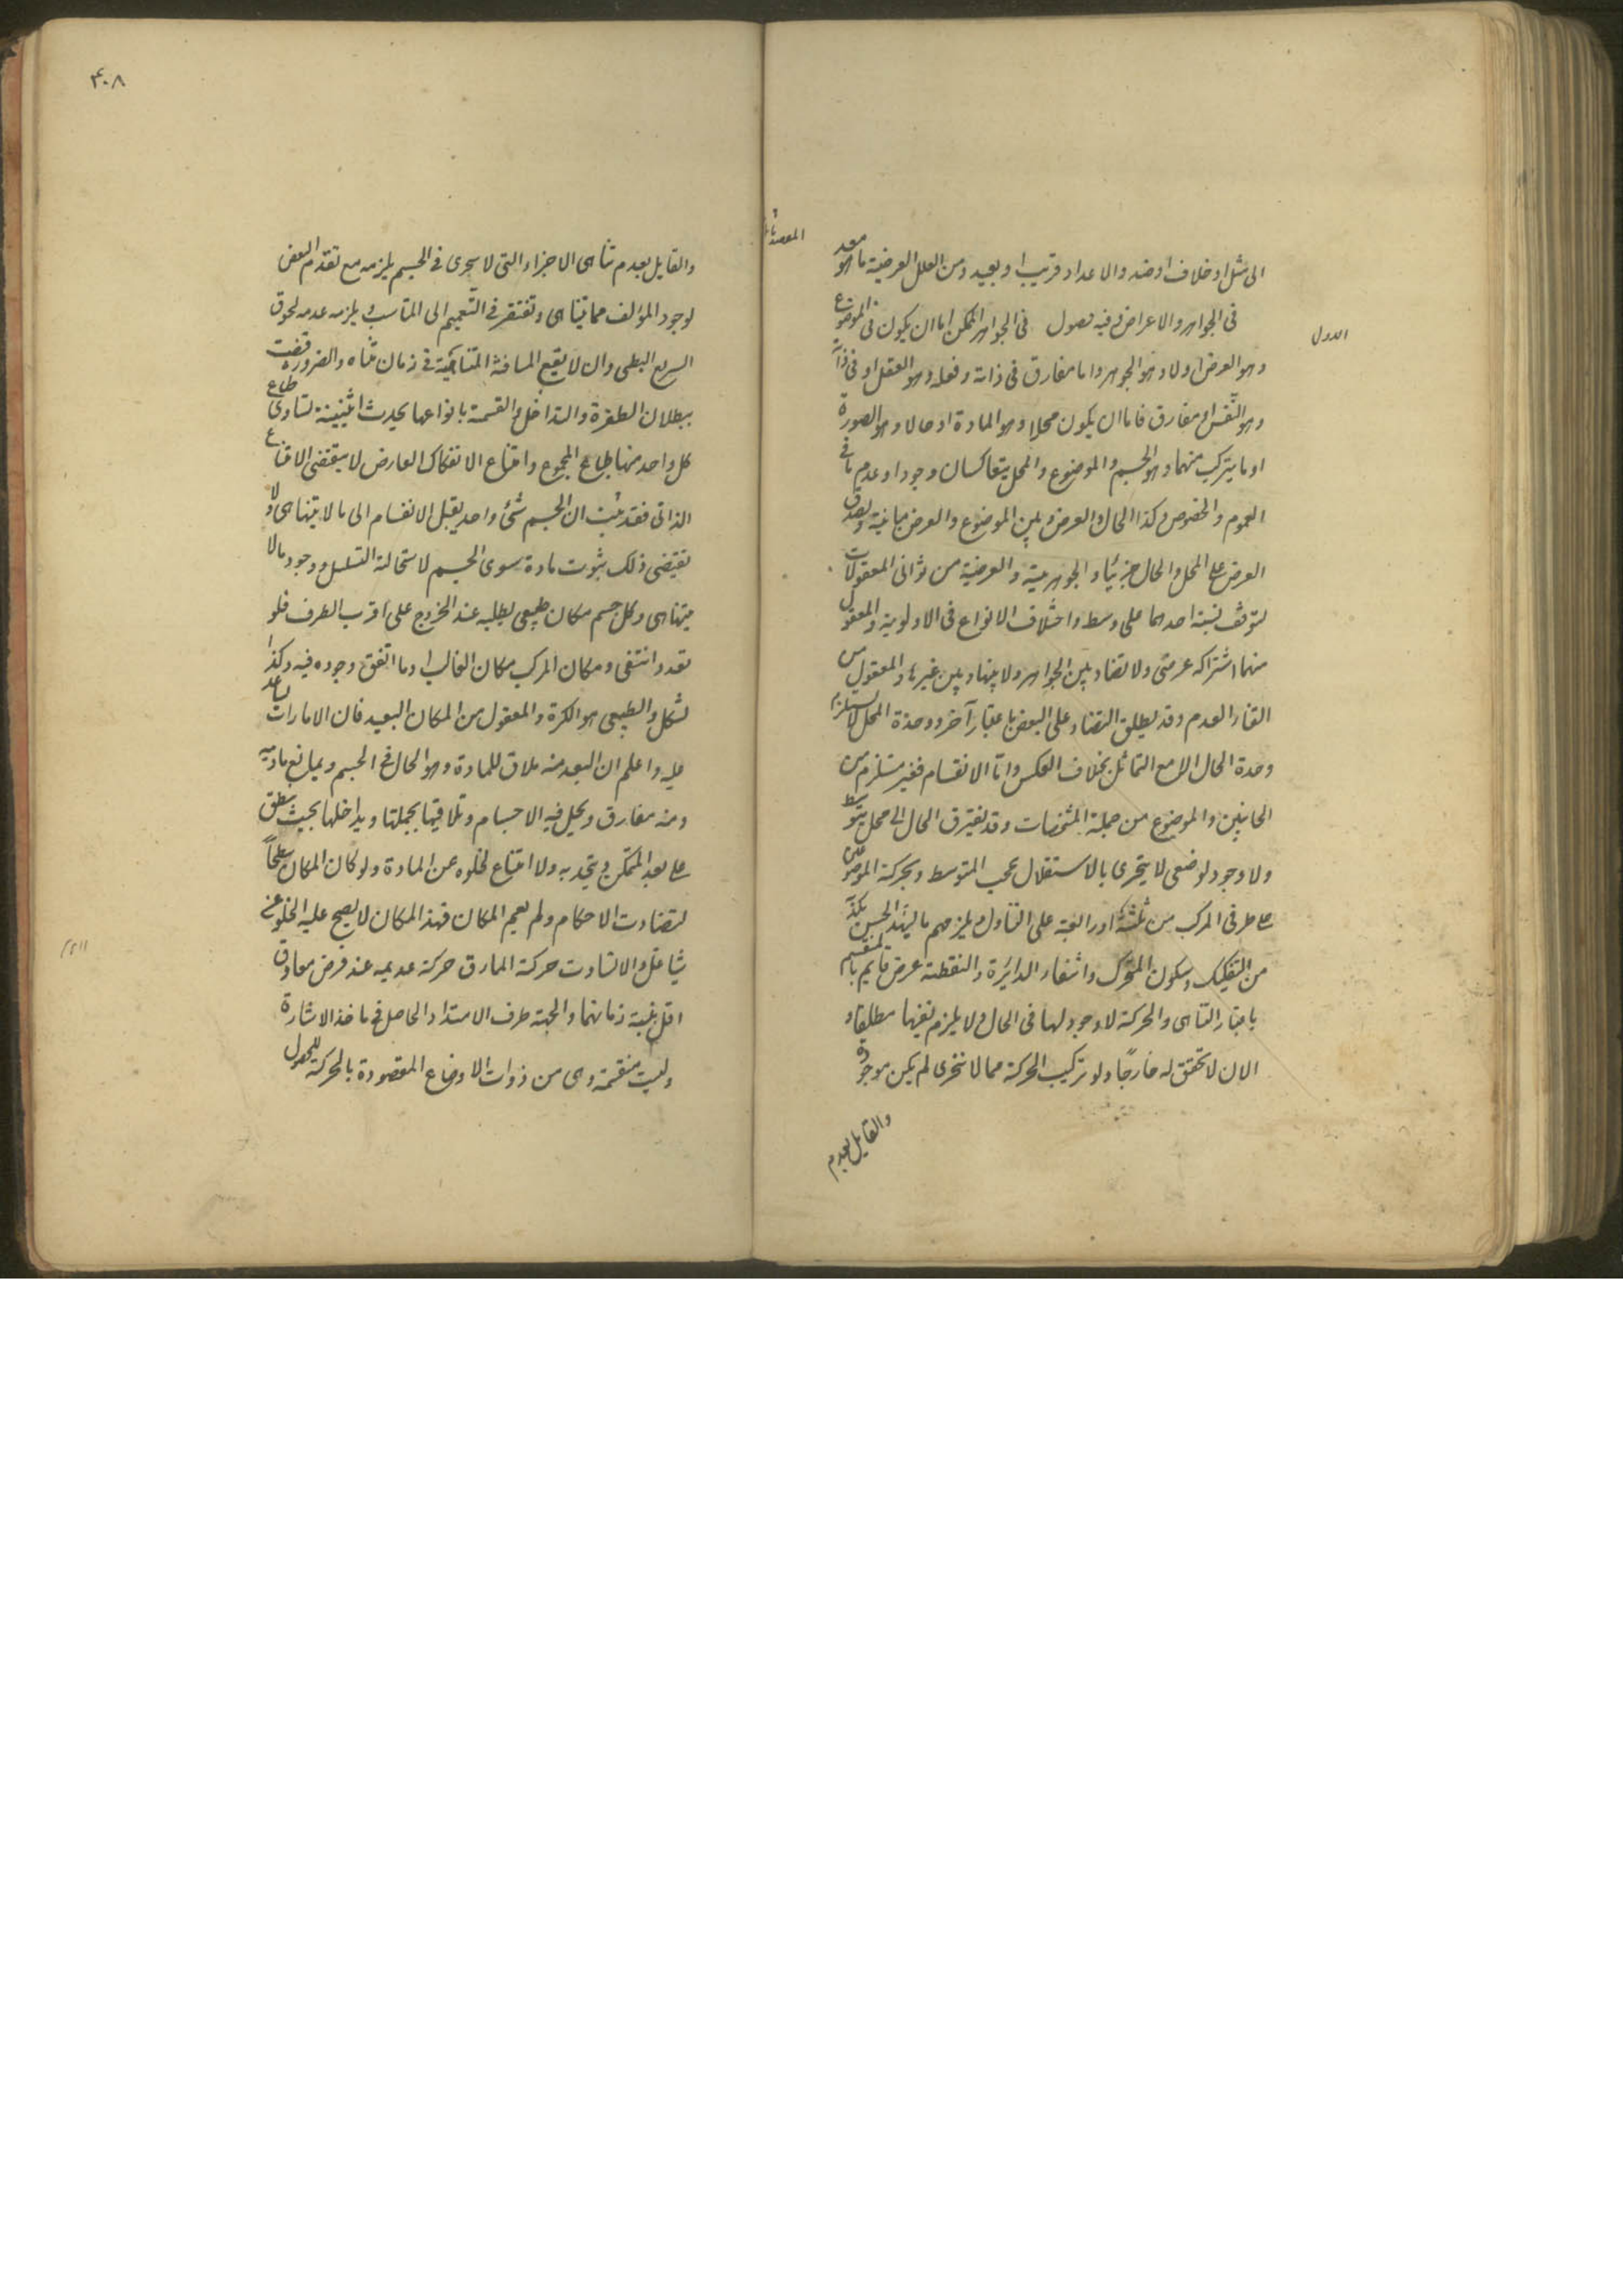 المقصد الثانى
الى مثل او خلاف او ضد والاعداد قريب او بعيد ومن العلل العرضية ما هو معد
فى الجواهر والاعراض وفيه فصول فى الجواهر الممكن اما ان يكون فى الموضوع
الاول
وهو العرض او لا وهو الجوهر واما مفارق فى ذاته وفعله وهو العقل او فى ذاته
وهو النفس او مفارق فاما ان يكون محلا وهو المادة او حالا وهو الصورة
او ما يتركب منهما وهو الجسم والموضوع والمحل يتعاكسان وجودا وعدما فى
العموم والخصوص وكذا الحال والعرض وبين الموضوع والعرض مباينة ويصدق
العرض على المحل والحال جزئيا والجوهرية والعرضية من ثوانى المعقولات
لتوقف نسبة احدهما على وسط واختلاف الانواع فى الاولوية والمعقول
منهما اشتراكه عرضى ولا تضاد بين الجواهر ولا بينها وبين غيرها والمعقول من
الفناء العدم وقد يطلق التضاد على البعض باعتبار آخر ووحدة المحل لا يستلزم
وحدة الحال الا مع التماثل بخلاف العكس واما الانقسام فغير مستلزم من
الجانبين والموضوع من جملة المشخصات وقد يفتقر الحال الى محل يتوسط
ولا وجود لوضعى لا يتجزى بالاستقلال بحجب المتوسط وبحركة الموضوعين
على طرفى المركب من ثلثة او اربعة على التبادل ويلزمهم ما يشهد الحس بكذبه
من التفكيك وسكون المتحرك وانتفاء الدائرة والنقطة عرض قايم بالمنقسم
باعتبار التناهى والحركة لا وجود لها فى الحال ولا يلزم نفيها مطلقا و
الان لا تحقق له خارجا ولو تركب الحركة مما لا تتجزى لم يكن موجودة
والقايل بعدم
٤٠٨
والقايل بعدم تناهى الاجزاء التى لا تتجزى فى الجسم يلزمه مع تقدم النقض
لوجود المؤلف مما يتناهى وتفتقر فى التعميم الى التناسب ويلزمه عدم لحوق
السريع البطى وان لا يقطع المسافة المتناهية فى زمان متناه والضرورة قضت
ببطلان الطفرة والتداخل والقسمة بانواعها يحدث اثنينية تساوى طباع
كل واحد منها طباع المجموع وامتناع الانفكاك العارض لا يقتضى الامتناع
الذاتى فقد ثبت ان الجسم شئ واحد يقبل الانقسام الى ما لا يتناهى ولا
يقتضى ذلك ثبوت مادة سوى الجسم لاستحالة التسلسل ووجود ما لا
يتناهى ولكل جسم مكان طبيعى يطلبه عند الخروج على اقرب الطرق فلو
تعدد انتفى ومكان المركب مكان الغالب او ما اتفق وجوده فيه وكذا
الشكل والطبيعى هو الكرة والمعقول من المكان البعد فان الامارات تساعد
عليه واعلم ان البعد منه ملاق للمادة وهو الحال فى الجسم ويمانع مساويه
ومنه مفارق ويحل فيه الاجسام وتلاقيها بجملتها ويداخلها بحيث ينطبق
على بعد المتمكن ويتحد به ولا امتناع لخلوه عن المادة ولو كان المكان سطحا
لتضادت الاحكام ولم يعم المكان فهذا المكان لا يصح عليه الخلو عن
شاغل والا لتساوت حركة المعاوق حركة عديمه عند فرض معاوق
اقل بنسبة زمانهما والجهة طرف الامتداد الحاصل فى ماخذ الاشارة
وليست منقسمة وهى من ذوات الاوضاع المقصودة بالحركة للحصول